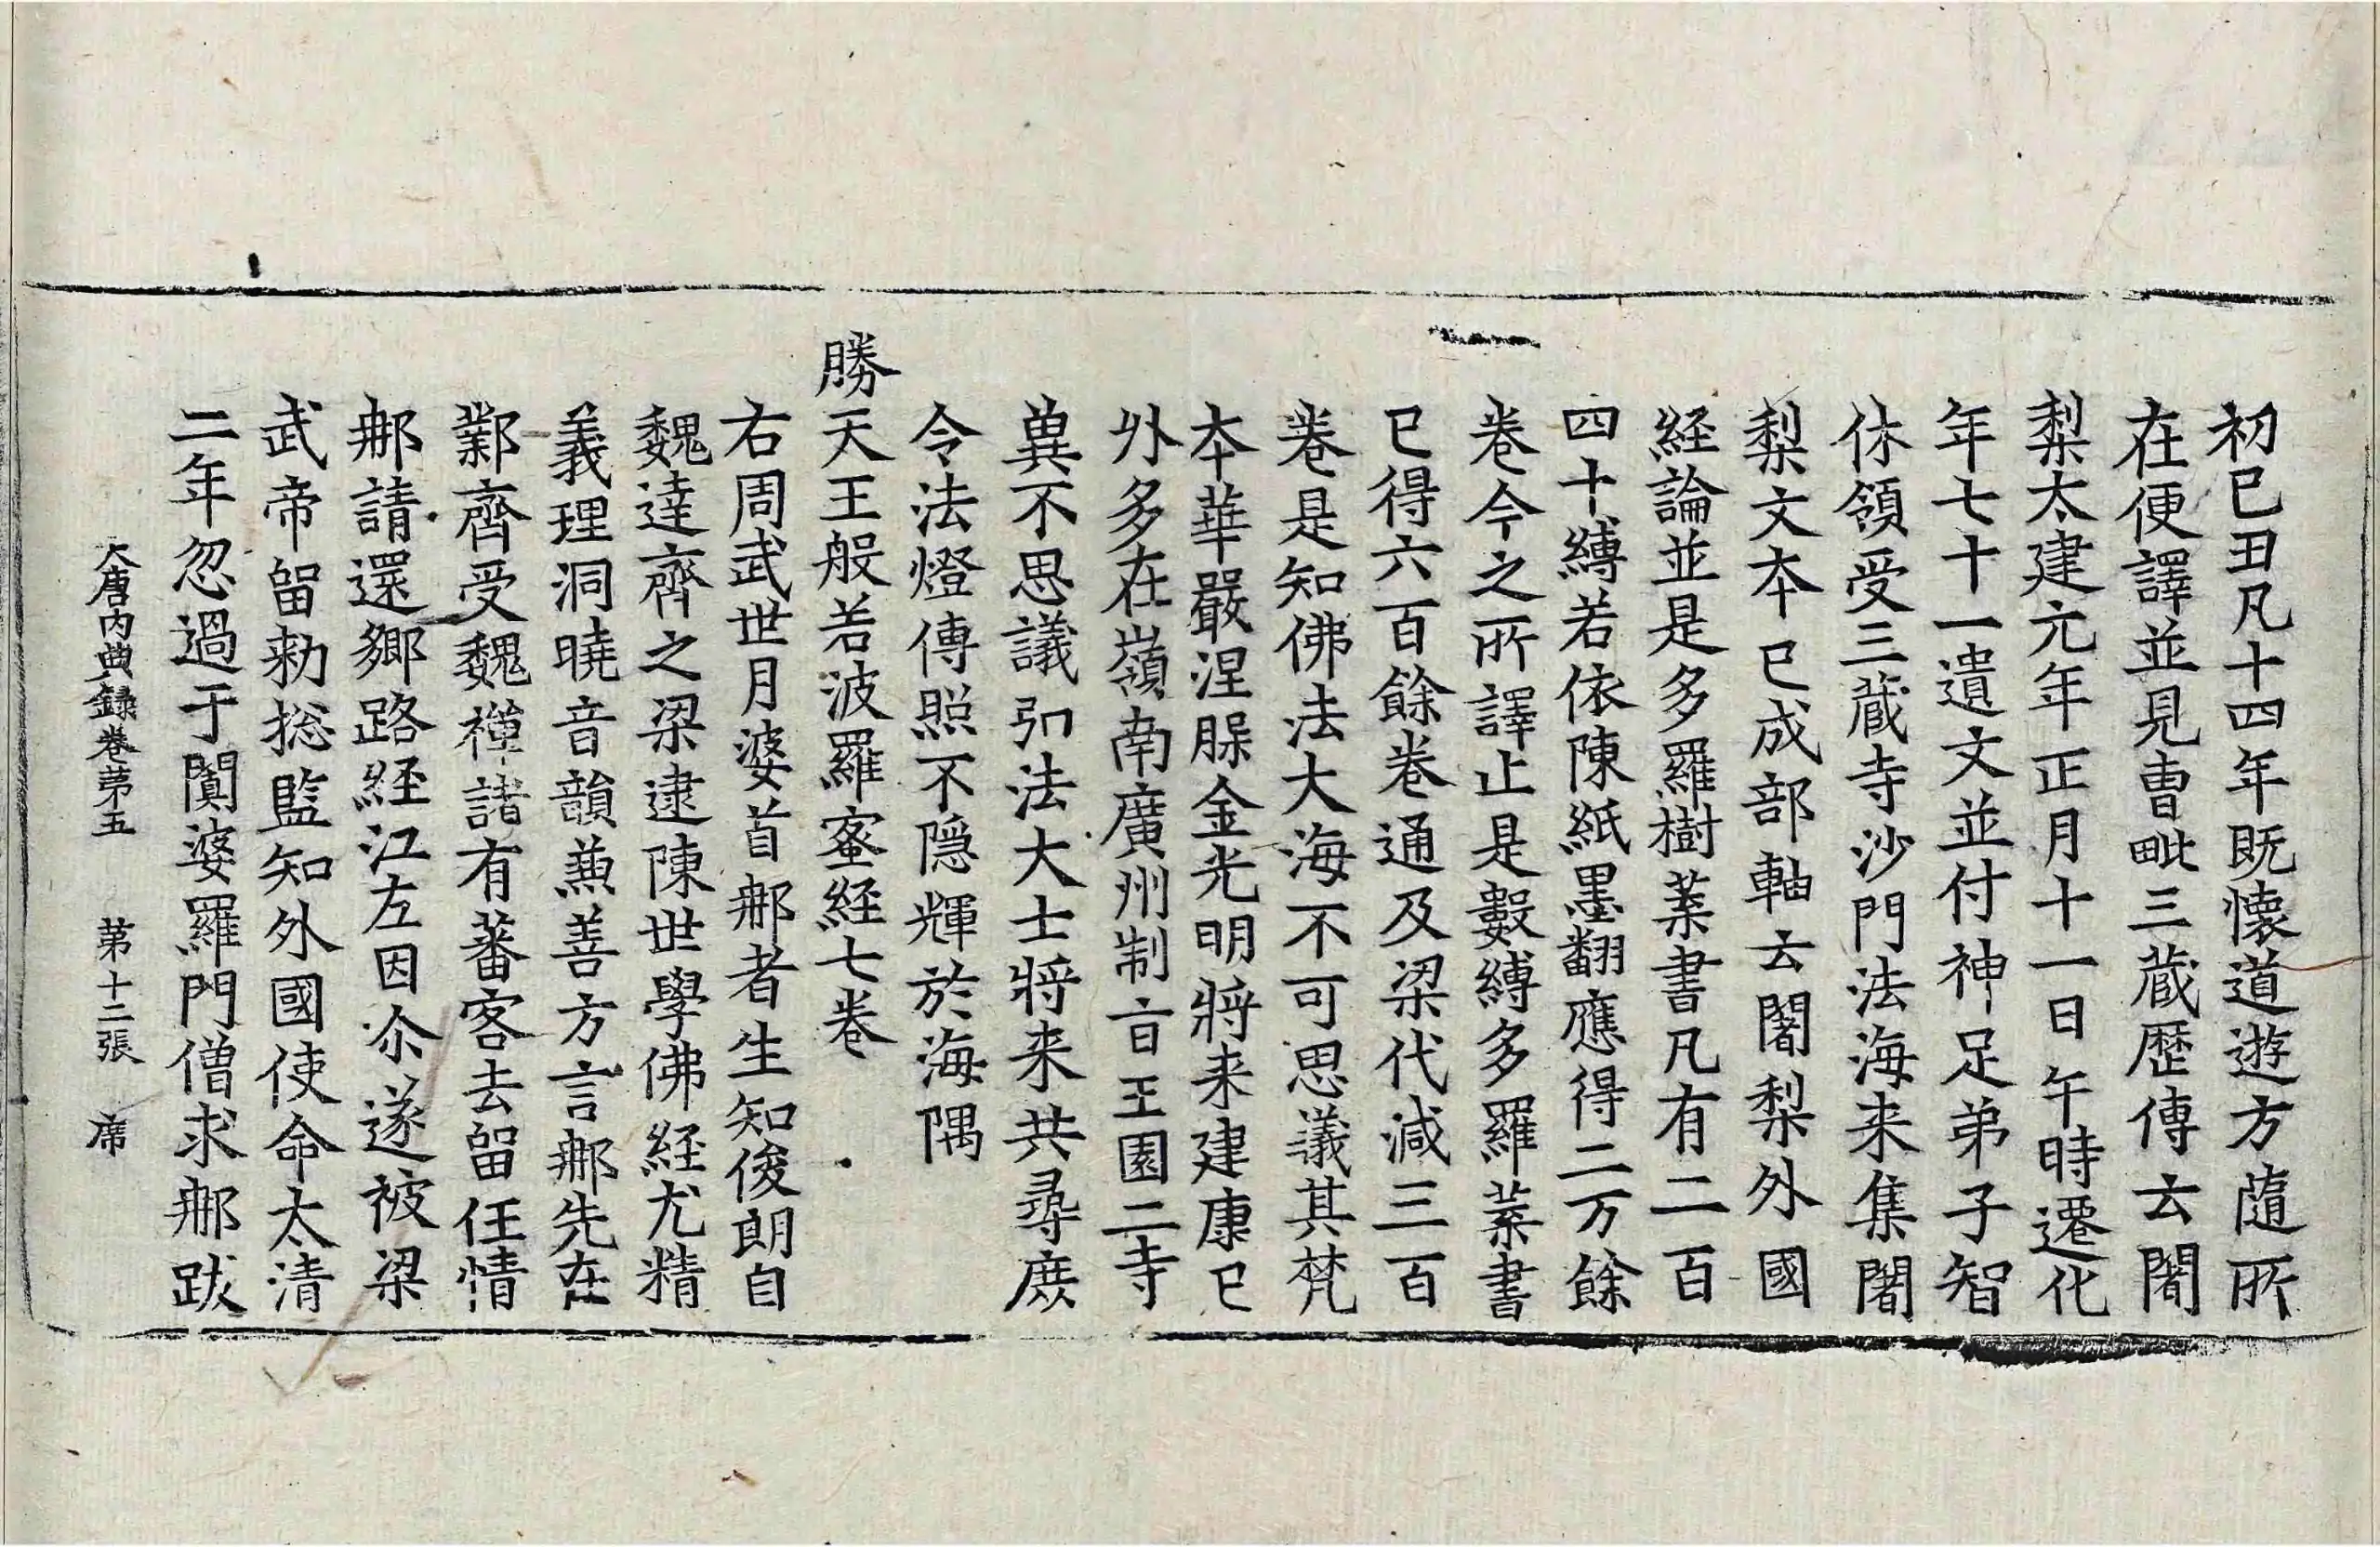 初已丑凡十四年既懷道遊方隨所
在便譯並見曺毗三藏歷傳云闍
梨太建元年正月十一日午時遷化
年七十一遺文並付神足弟子智
休領受三藏寺沙門法海来集闍
梨文本已成部軸云闍梨外國
経論並是多羅樹葉書凡有二百
四十縛若依陳紙墨翻應得二万餘
卷今之所譯止是數縛多羅葉書
已得六百餘卷通及梁代減三百
卷是知佛法大海不可思議其梵
本華嚴涅槃金光明將来建康已
外多在嶺南廣州制旨王園二寺
兾不思議弘法大士將来共尋庶
令法燈傳照不隱輝於海隅
勝天王般若波羅蜜経七卷
右周武世月婆首那者生知俊朗自
魏達齊之梁逮陳世學佛経尤精
義理洞曉音韻兼善方言那先在
鄴齊受魏禪諸有蕃客去留任情
那請還鄉路経江左因尒遂被梁
武帝留勑捴監知外國使命太清
二年忽過于闐婆羅門僧求那跋
大唐内典録卷第五　第十二張　席